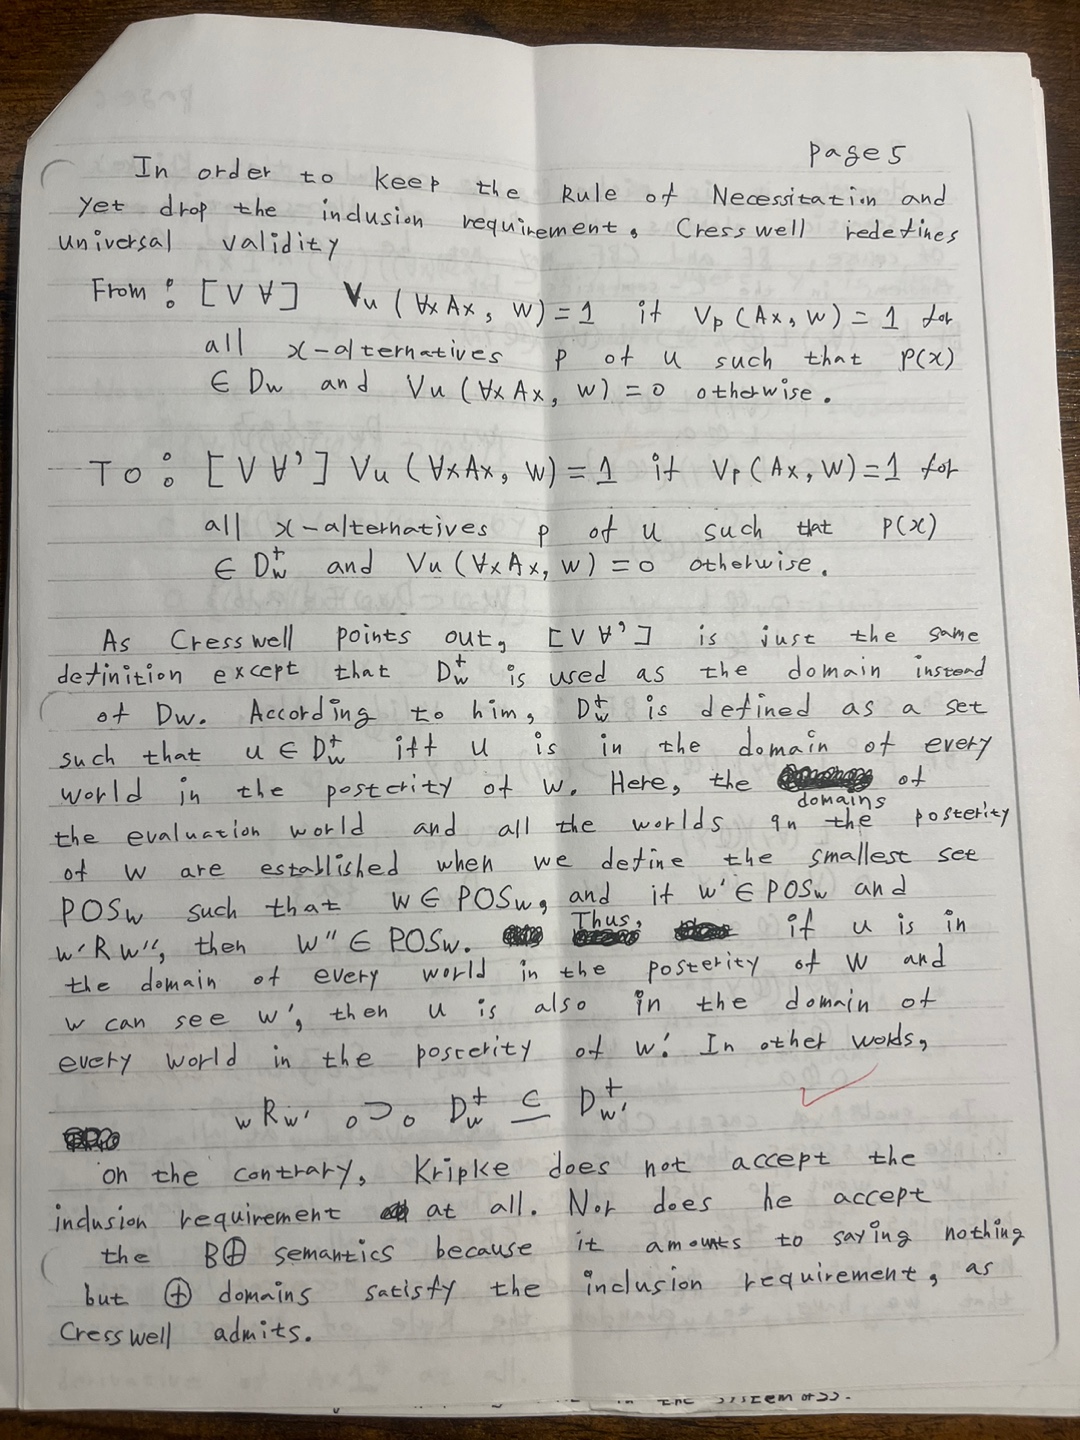 page 5
In order to keep the Rule of Necessitation and
yet drop the inclusion requirement, Cresswell redefines
universal validity
From : [V∀] Vu (∀xAx, w) = 1 if Vp (Ax, w) = 1 for
all x-alternatives p of u such that p(x)
∈ Dw and Vu (∀xAx, w) = 0 otherwise.
To : [V∀'] Vu (∀xAx, w) = 1 if Vp (Ax, w) = 1 for
all x-alternatives p of u such that p(x)
∈ D⁺w and Vu (∀xAx, w) = 0 otherwise.
As Cresswell points out, [V∀'] is just the same
definition except that D⁺w is used as the domain instead
of Dw. According to him, D⁺w is defined as a set
such that u ∈ D⁺w iff u is in the domain of every
world in the posterity of w. Here, the domains of
the evaluation world and all the worlds in the posterity
of w are established when we define the smallest set
POSw such that w ∈ POSw, and if w' ∈ POSw and
w'Rw'', then w'' ∈ POSw. Thus, if u is in
the domain of every world in the posterity of w and
w can see w', then u is also in the domain of
every world in the posterity of w'. In other words,
wRw' ∘⊃∘ D⁺w ⊆ D⁺w'
On the contrary, Kripke does not accept the
inclusion requirement at all. Nor does he accept
the B⊕ semantics because it amounts to saying nothing
but ⊕ domains satisfy the inclusion requirement, as
Cresswell admits.
in the system of